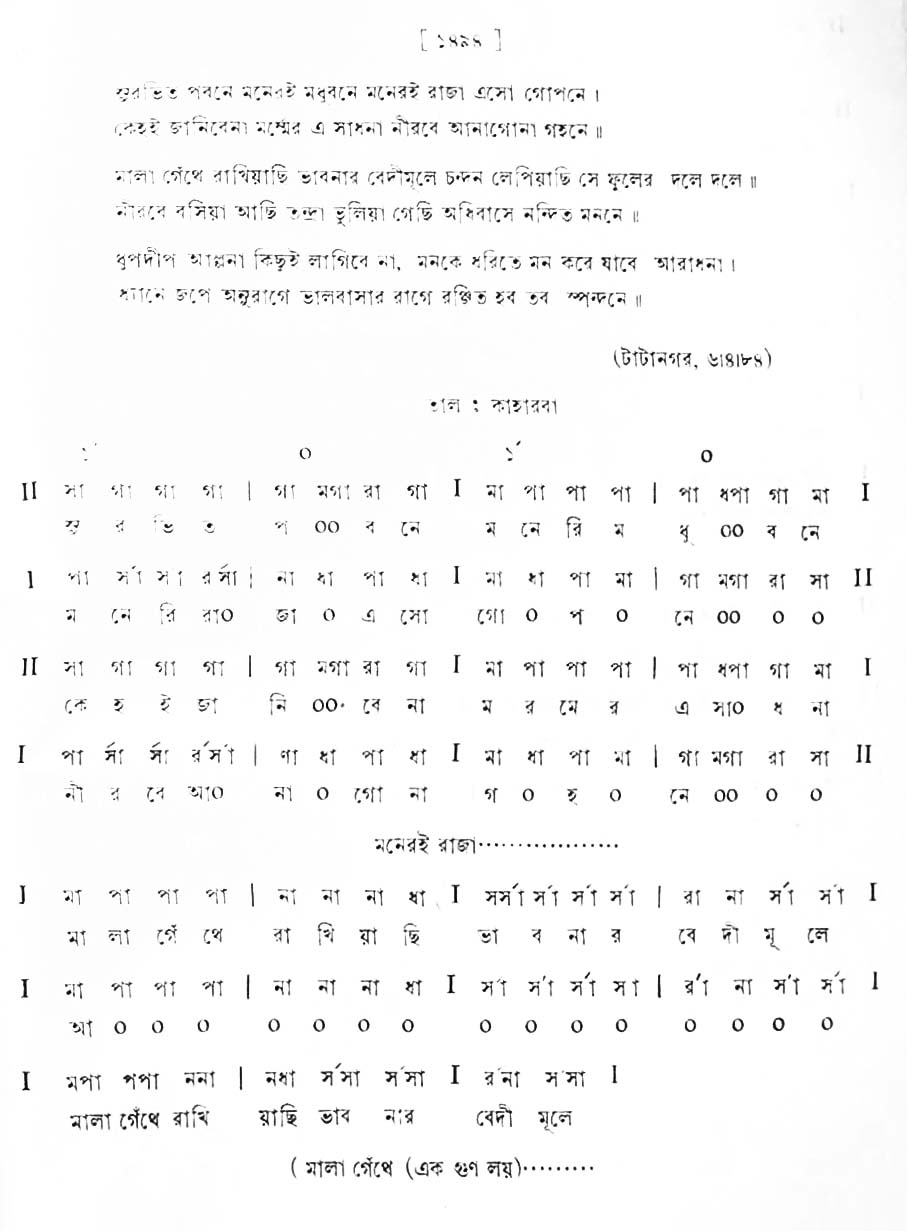 [ ১৪৯৪ ]
সুরভিত পবনে মনেরই মধুবনে মনেরই রাজা এসো গোপনে ।
কেহই জানিবেনা মর্ম্মের এ সাধনা নীরবে আনাগোনা গহনে ॥
মালা গেঁথে রাখিয়াছি ভাবনার বেদীমূলে চন্দন লেপিয়াছি সে ফুলের দলে দলে ॥
নীরবে বসিয়া আছি তন্দ্রা ভুলিয়া গেছি অধিবাসে নন্দিত মননে ॥
ধুপদীপ আল্পনা কিছুই লাগিবে না, মনকে ধরিতে মন করে যাবে আরাধনা ।
ধ্যানে জপে অনুরাগে ভালবাসার রাগে রঞ্জিত হব তব স্পন্দনে ॥
(টাটানগর, ৬।৪।৮৪)
তাল : কাহারবা
১´ ০ ১´ ০
II সা গা গা গা | গা মগা রা গা I মা পা পা পা | পা ধপা গা মা I
সু র ভি ত প ০০ ব নে ম নে রি ম ধু ০০ ব নে
I পা র্সা র্সা রর্সা | না ধা পা ধা I মা ধা পা মা | গা মগা রা সা II
ম নে রি রা০ জা ০ এ সো গো ০ প ০ নে ০০ ০ ০
II সা গা গা গা | গা মগা রা গা I মা পা পা পা | পা ধপা গা মা I
কে হ ই জা নি ০০ বে না ম র মে র এ সা০ ধ না
I পা র্সা র্সা র্রর্সা | ণা ধা পা ধা I মা ধা পা মা | গা মগা রা সা II
নী র বে আ০ না ০ গো না গ ০ হ ০ নে ০০ ০ ০
মনেরই রাজা···················
I মা পা পা পা | না না না ধা I সর্সা র্সা র্সা র্সা | রা না র্সা র্সা I
মা লা গেঁ থে রা খি য়া ছি ভা ব না র বে দী মূ লে
I মা পা পা পা | না না না ধা I র্সা র্সা র্সা র্সা | র্রা না র্সা র্সা I
আ ০ ০ ০ ০ ০ ০ ০ ০ ০ ০ ০ ০ ০ ০ ০
I মপা পপা ননা | নধা র্সসা র্সসা I র্রনা র্সসা I
মালা গেঁথে রাখি য়াছি ভাব নার বেদী মূলে
( মালা গেঁথে (এক গুণ লয়)·········